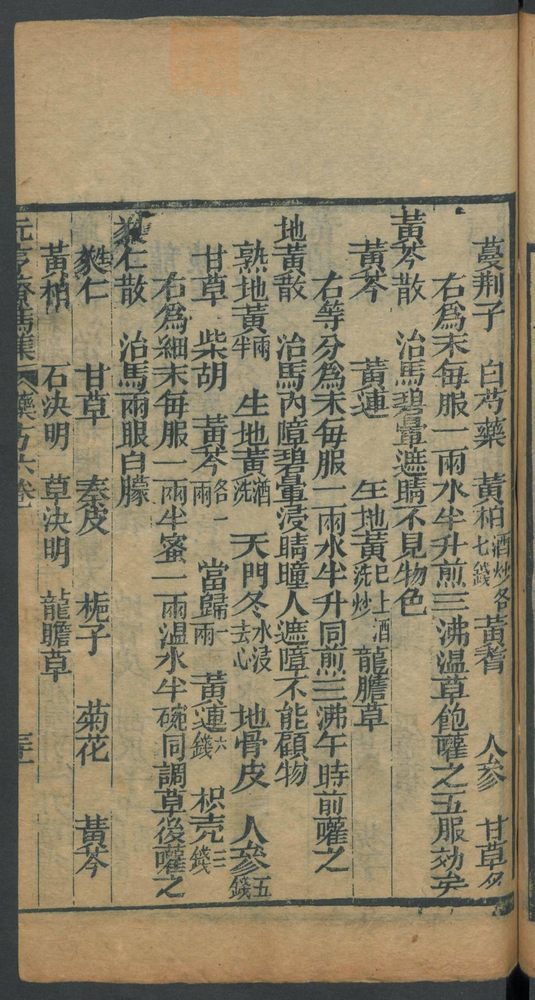 蔓荆子 白芍藥 黃柏酒炒各七錢 黃耆 人參 甘草
右爲末每服一兩水半升煎三沸温草飽嚾之五服効矣
黃芩散 治馬碧暈遮睛不見物色
黃芩 黃連 生地黃已上酒洗炒 龍膽草
右等分爲末每服一兩水半升同煎三沸午時前嚾之
地黃散 治馬內障碧暈浸睛瞳人遮障不能顧物
熟地黃半兩 生地黃酒洗 天門冬水浸去心 地骨皮 人參五錢
甘草 柴胡 黃芩各一兩 當歸一兩 黃連六錢 枳壳三錢
右爲細末每服一兩半蜜一兩温水半碗同調草後嚾之
仁散 治馬兩眼白朦
仁 甘草 秦皮 梔子 菊花 黃芩
黃柏 石決明 草決明 龍膽草
元亨療馬集 藥方六卷